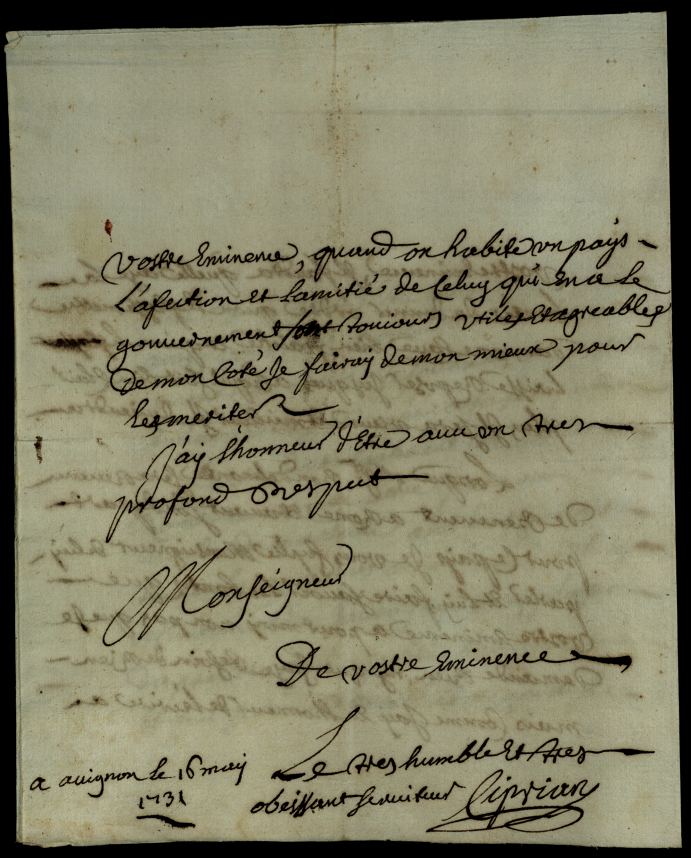 Vostre Eminence, quand on habite un pays
L'afection et l'amitié de Celuy qui En a Le
gouvernement sont toujours utiles Et agreables
De mon Coté Je fairay de mon mieux pour
Les meriter
J'ay l'honneur d'Etre avec un tres
profond Respect
Monseigneur
De vostre Eminence
Le tres humble Et tres
obeissant serviteur Ciprian
a avignon le 16 may
1731